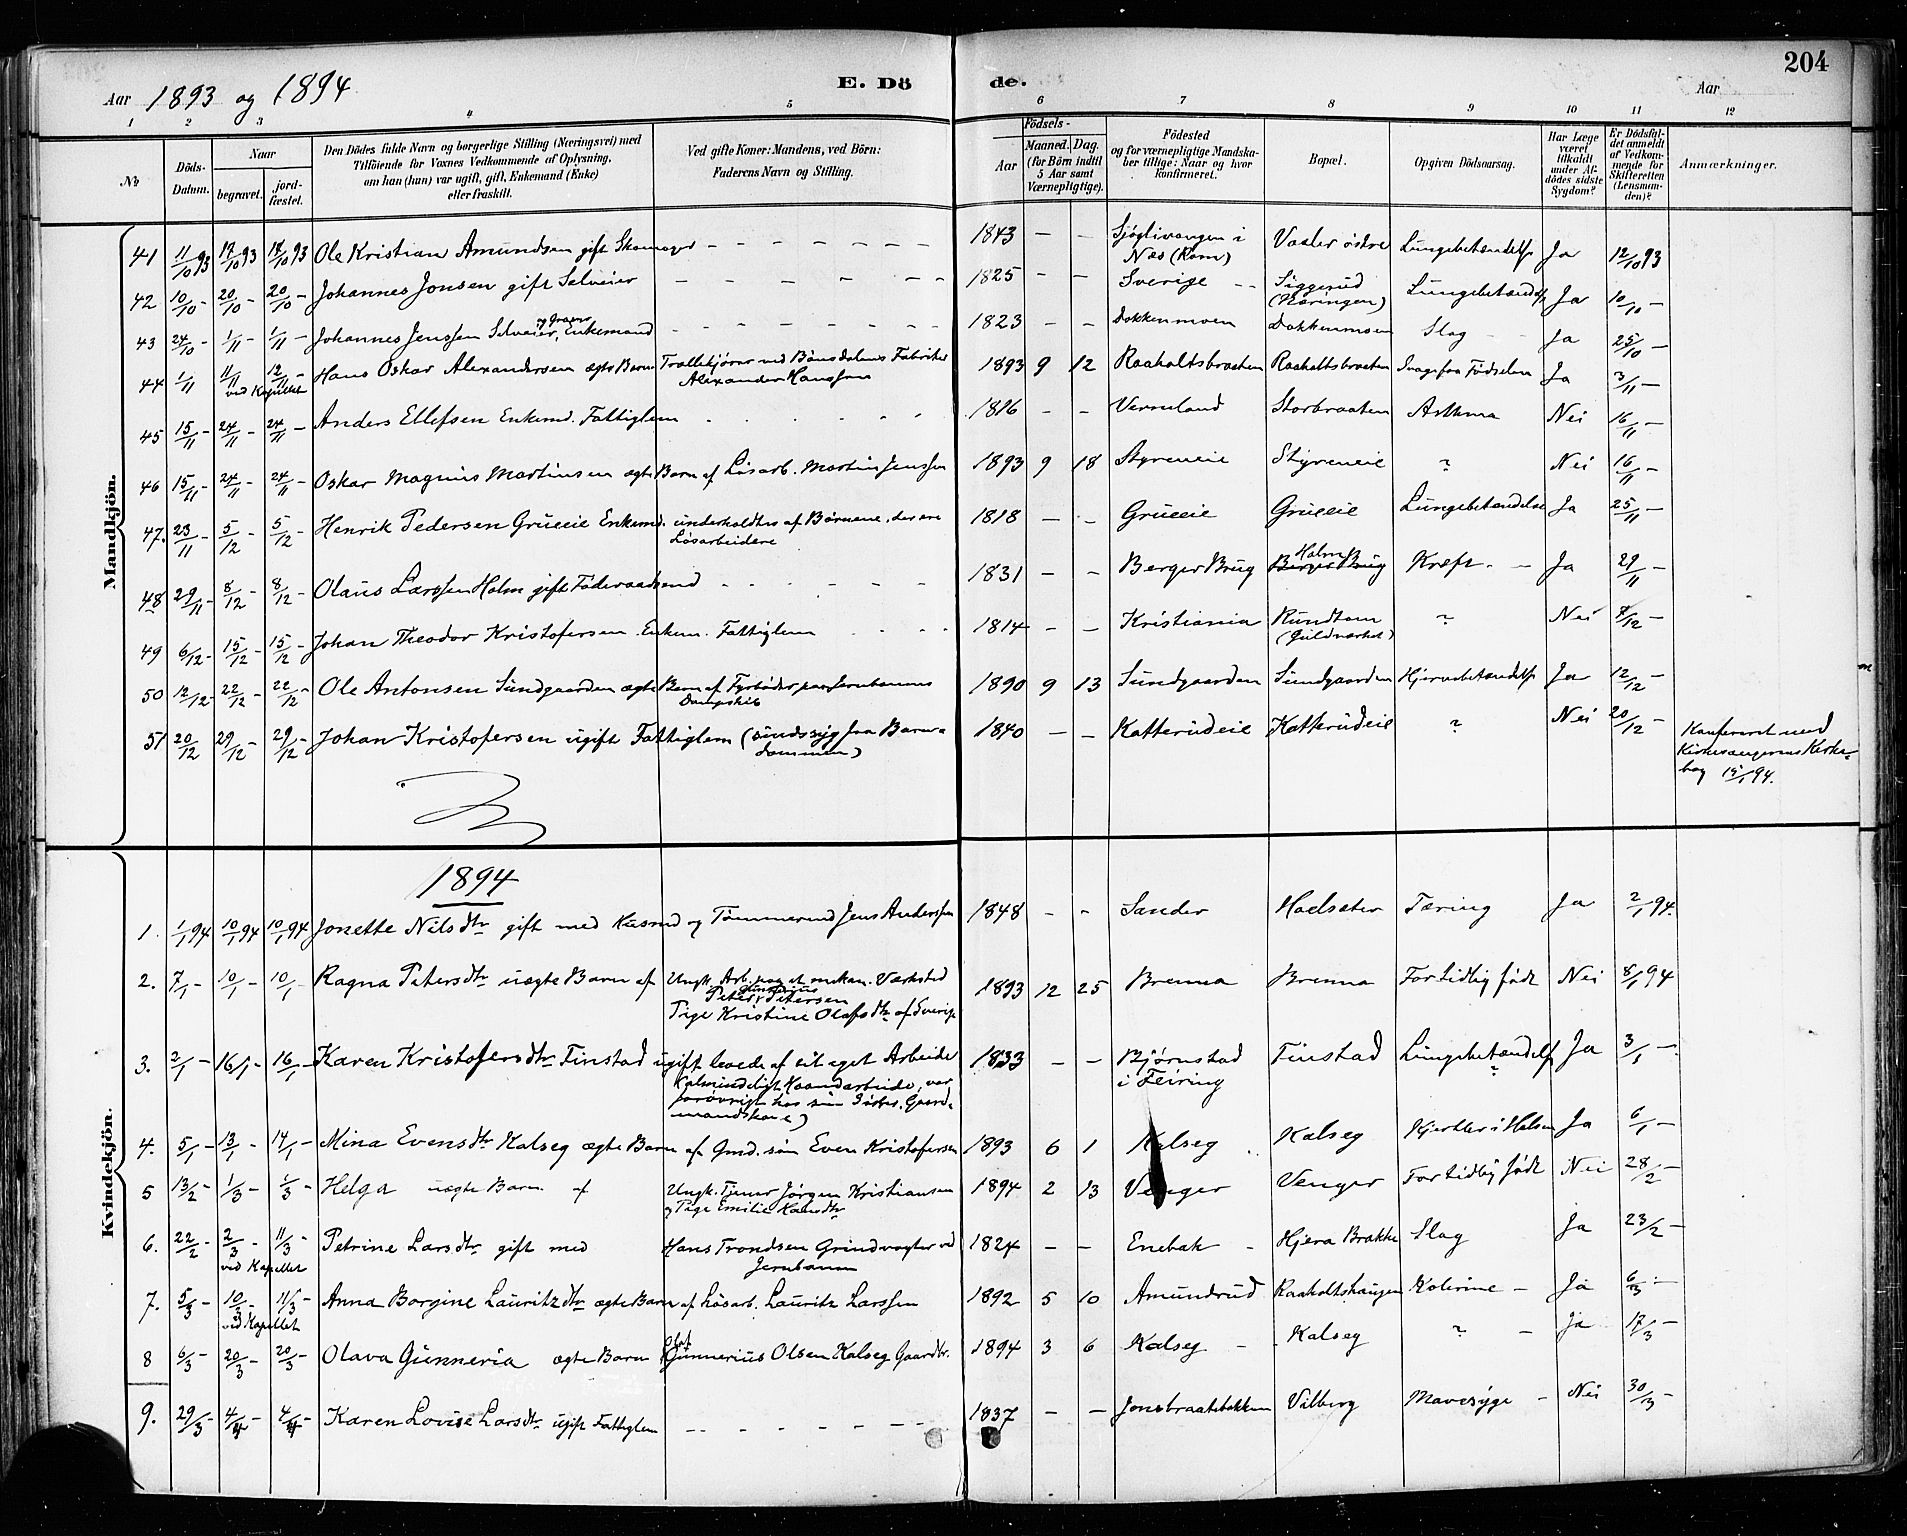 204
Aar 1893 og 1894
E. Dö de.
Aar
1 2 3 4 5 6 7 8 9 10 11 12
No
Döds-Datum.
Naar
begravet.
jord-fæstet.
Den Dödes fulde Navn og borgerlige Stilling (Næringsvei) med
Tilföiende for Voxnes Vedkommende af Oplysning,
om han (hun) var ugift, gift, Enkemand (Enke)
eller fraskilt.
Ved gifte Koner: Mandens, ved Börn:
Faderens Navn og Stilling.
Födsels-
Aar
Maaned. Dag.
(for Börn indtil
5 Aar samt
Værnepligtige).
Födested
og for værnepligtige Mandska-
ber tillige: Naar og hvor
konfirmeret.
Bopæl.
Opgiven Dödsaarsag.
Har Læge
været
tilkaldt
under Af-
dödes sidste
Sygdom?
Er Dödsfal-
det anmeldt
af Vedkom-
mende for
Skifteretten
(Lensman-
den)?
Anmærkninger.
Mandkjön.
41 11/10 93 17/10 93 17/10 93 Ole Kristian Amundsen gift Skomager - - - 1843 - - i Næs (Rom) Vaaler østre Lungebetændelse Ja 12/10 93
42 10/10 - 20/10 - 20/10 - Johannes Jonsen gift Selveier - - - 1825 - - Sverige - - Siggerud Lungebetændelse Ja 10/10 -
43 24/10 - 1/11 - 1/11 - Johannes Jenssen Selveier, Enkemand - - - 1823 - - Dokkenmoen Dokkenmoen Slag Ja 25/10 -
44 1/11 11/11 12/11 - ved Kapellet Hans Oskar Alexandersen ægte Barn Trallekjører ved Bønsdalens Fabriker Alexander Hanssen 1893 9 12 Raaholtsbraaten Raaholtsbraaten Svag fra Fødselen Ja 3/11 -
45 15/11 - 24/11 - 24/11 - Anders Ellefsen Enkemd. Fattiglem 1816 - - Vermeland Storbraaten Asthma Nei 16/11 -
46 15/11 - 24/11 - 24/11 - Oskar Magnus Martinsen ægte Barn af Løsarb. Martin Jenssen 1893 9 18 Styreneie Styreneie ? Nei 16/11 -
47. 23/11 - 5/12 - 5/12 - Henrik Pedersen Grueeie Enkemd. underholdtes af Børnene, der ere Løsarbeidere 1818 - - Grueeie Grueeie Lungebetændelse Ja 25/11 -
48 29/11 - 8/12 - 8/12 - Olaus Larssen Holm gift Føderaadsmd - - - 1831 - - Berger Brug Holm Berger Brug Kræft - Ja 29/11 -
49 6/12 - 15/12 - 15/12 - Johan Theodor Kristofersen Enkem. Fattiglem 1814 - - Kristiania Rundtom (Guldværket) ? Nei 7/12 -
50 12/12 - 22/12 - 22/12 - Ole Antonsen Sundgaarden ægte Barn af Fyrbøder paa Jernbanens Dampskib 1890 9 13 Sundgaarden Sundgaarden Hjernebetændelse Ja 12/12 -
51 20/12 29/12 - 29/12 - Johan Kristofersen ugift Fattiglem (sindssyg fra Barndommen) 1840 - - Katterudeie Katterudeie ? Nei 20/12 -
Konfereret med
Kirkesangerens Kirke-
bog 15/1 94.
Kvindekjön.
1894
1. 1/1 94 10/1 94 10/1 94 Jonette Nilsdtr gift med Husmd og Tømmermd Jens Anderssen 1848 - - Sander Holsæter Tæring Ja 2/1 94.
2. 7/1 - 10/1 - 10/1 - Ragna Petersdtr uægte Barn af Ungk. Arb. paa et mekan. Værksted Peter Gunerius Petersen Pige Kristine Olafsdtr af Sverige 1893 12 25 Brenna Brenna For tidlig født Nei 8/1 94
3. 2/1 - 16/1 - 16/1 - Karen Kristofersdtr Finstad ugift levede af sit eget Arbeide (almindeligt Haandarbeide, var forøvrigt hos sin Søster, Gaardmandskone) 1833 - - Bjørnstad i Feiring Finstad Lungebetændelse ? Ja 3/1 -
4. 5/1 - 13/1 - 14/1 - Mina Evensdtr Kalseg ægte Barn af Gmd.søn Even Kristofersen 1893 6 1 Kalseg Kalseg Kjertler i Halsen Ja 6/1 -
5 13/2 - 1/3 - 1/3 - Helga uægte Barn af Ungk. Tjener Jørgen Kristiansen og Pige Emilie Hansdtr 1894 2 13 Venger Venger For tidlig født Nei 28/2 -
6. 22/2 - 2/3 - 11/3 - ved Kapellet Petrine Larsdtr gift med Hans Trondsen Grindvogter ved Jernbanen 1824 - - Enebak - Hjera Brakke Slag Ja 23/2 -
7. 5/3 - 10/3 - 11/3 - ved Kapellet Anna Borgine Lauritzdtr ægte Barn af Løsarb. Lauritz Larssen 1892 5 10 Amundrud Raaholtshaugen Kolerine - Ja 6/3 -
8 6/3 - 20/3 - 20/3 - Olava Gunneria ægte Barn Olaf Gunnerius Olsen Kalseg Gaardbr. 1894 3 6 Kalseg - Kalseg ? - Ja 17/3 -
9. 29/3 - 4/4 - 4/4 - Karen Lovise Larsdtr ugift Fattiglem - - - 1837 - - Jonsbraatebakken Vilberg Mavesyge - Nei 30/3 -